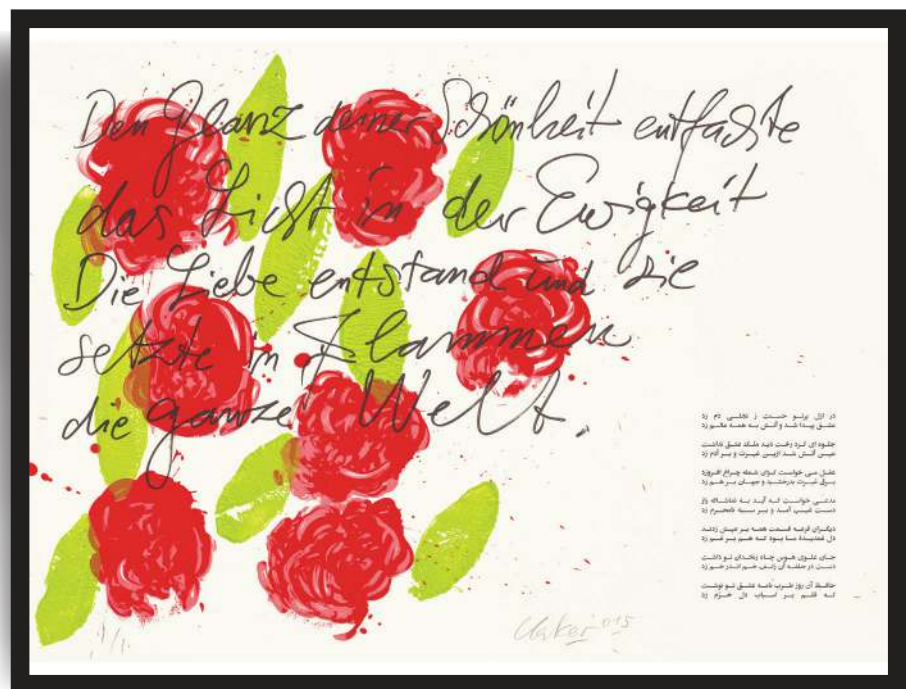 Den Glanz deiner Schönheit entfachte
das Licht in der Ewigkeit
Die Liebe entstand und sie
setzte in Flammen
die ganze Welt.
در ازل پرتو حسنت ز تجلی دم زد
عشق پیدا شد و آتش به همه عالم زد
جلوه ای کرد رخت دید ملک عشق نداشت
عین آتش شد ازین غیرت و بر آدم زد
عقل می خواست کزان شعله چراغ افروزد
برق غیرت بدرخشید و جهان بر هم زد
مدعی خواست که آید به تماشاگه راز
دست غیب آمد و بر سینه نامحرم زد
دیگران قرعه قسمت همه بر عیش زدند
دل غمدیده ما بود که هم بر غم زد
جان علوی هوس چاه زنخدان تو داشت
دست در حلقه آن زلف خم اندر خم زد
حافظ آن روز طرب نامه عشق تو نوشت
که قلم بر سر اسباب دل خرم زد
Uecker 015